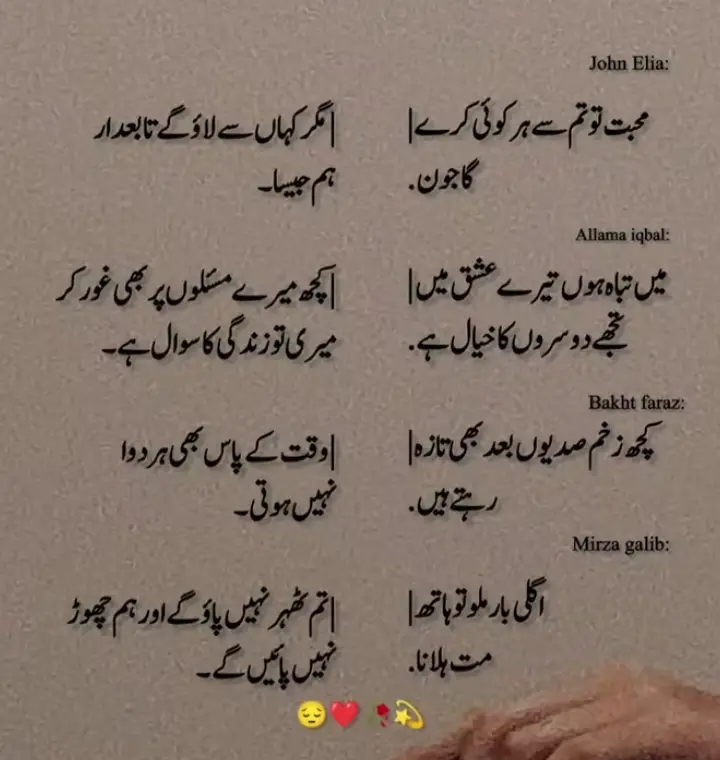 John Elia:
محبت تو تم سے ہر کوئی کرے| |مگر کہاں سے لاؤ گے تابعدار
گا جون. ہم جیسا۔
Allama iqbal:
میں تباہ ہوں تیرے عشق میں| |کچھ میرے مسئلوں پر بھی غور کر
تجھے دوسروں کا خیال ہے. میری تو زندگی کا سوال ہے۔
Bakht faraz:
کچھ زخم صدیوں بعد بھی تازہ| |وقت کے پاس بھی ہر دوا
رہتے ہیں. نہیں ہوتی۔
Mirza galib:
اگلی بار ملو تو ہاتھ| |تم ٹھہر نہیں پاؤ گے اور ہم چھوڑ
مت ہلانا. نہیں پائیں گے۔
😔❤️🥀💫